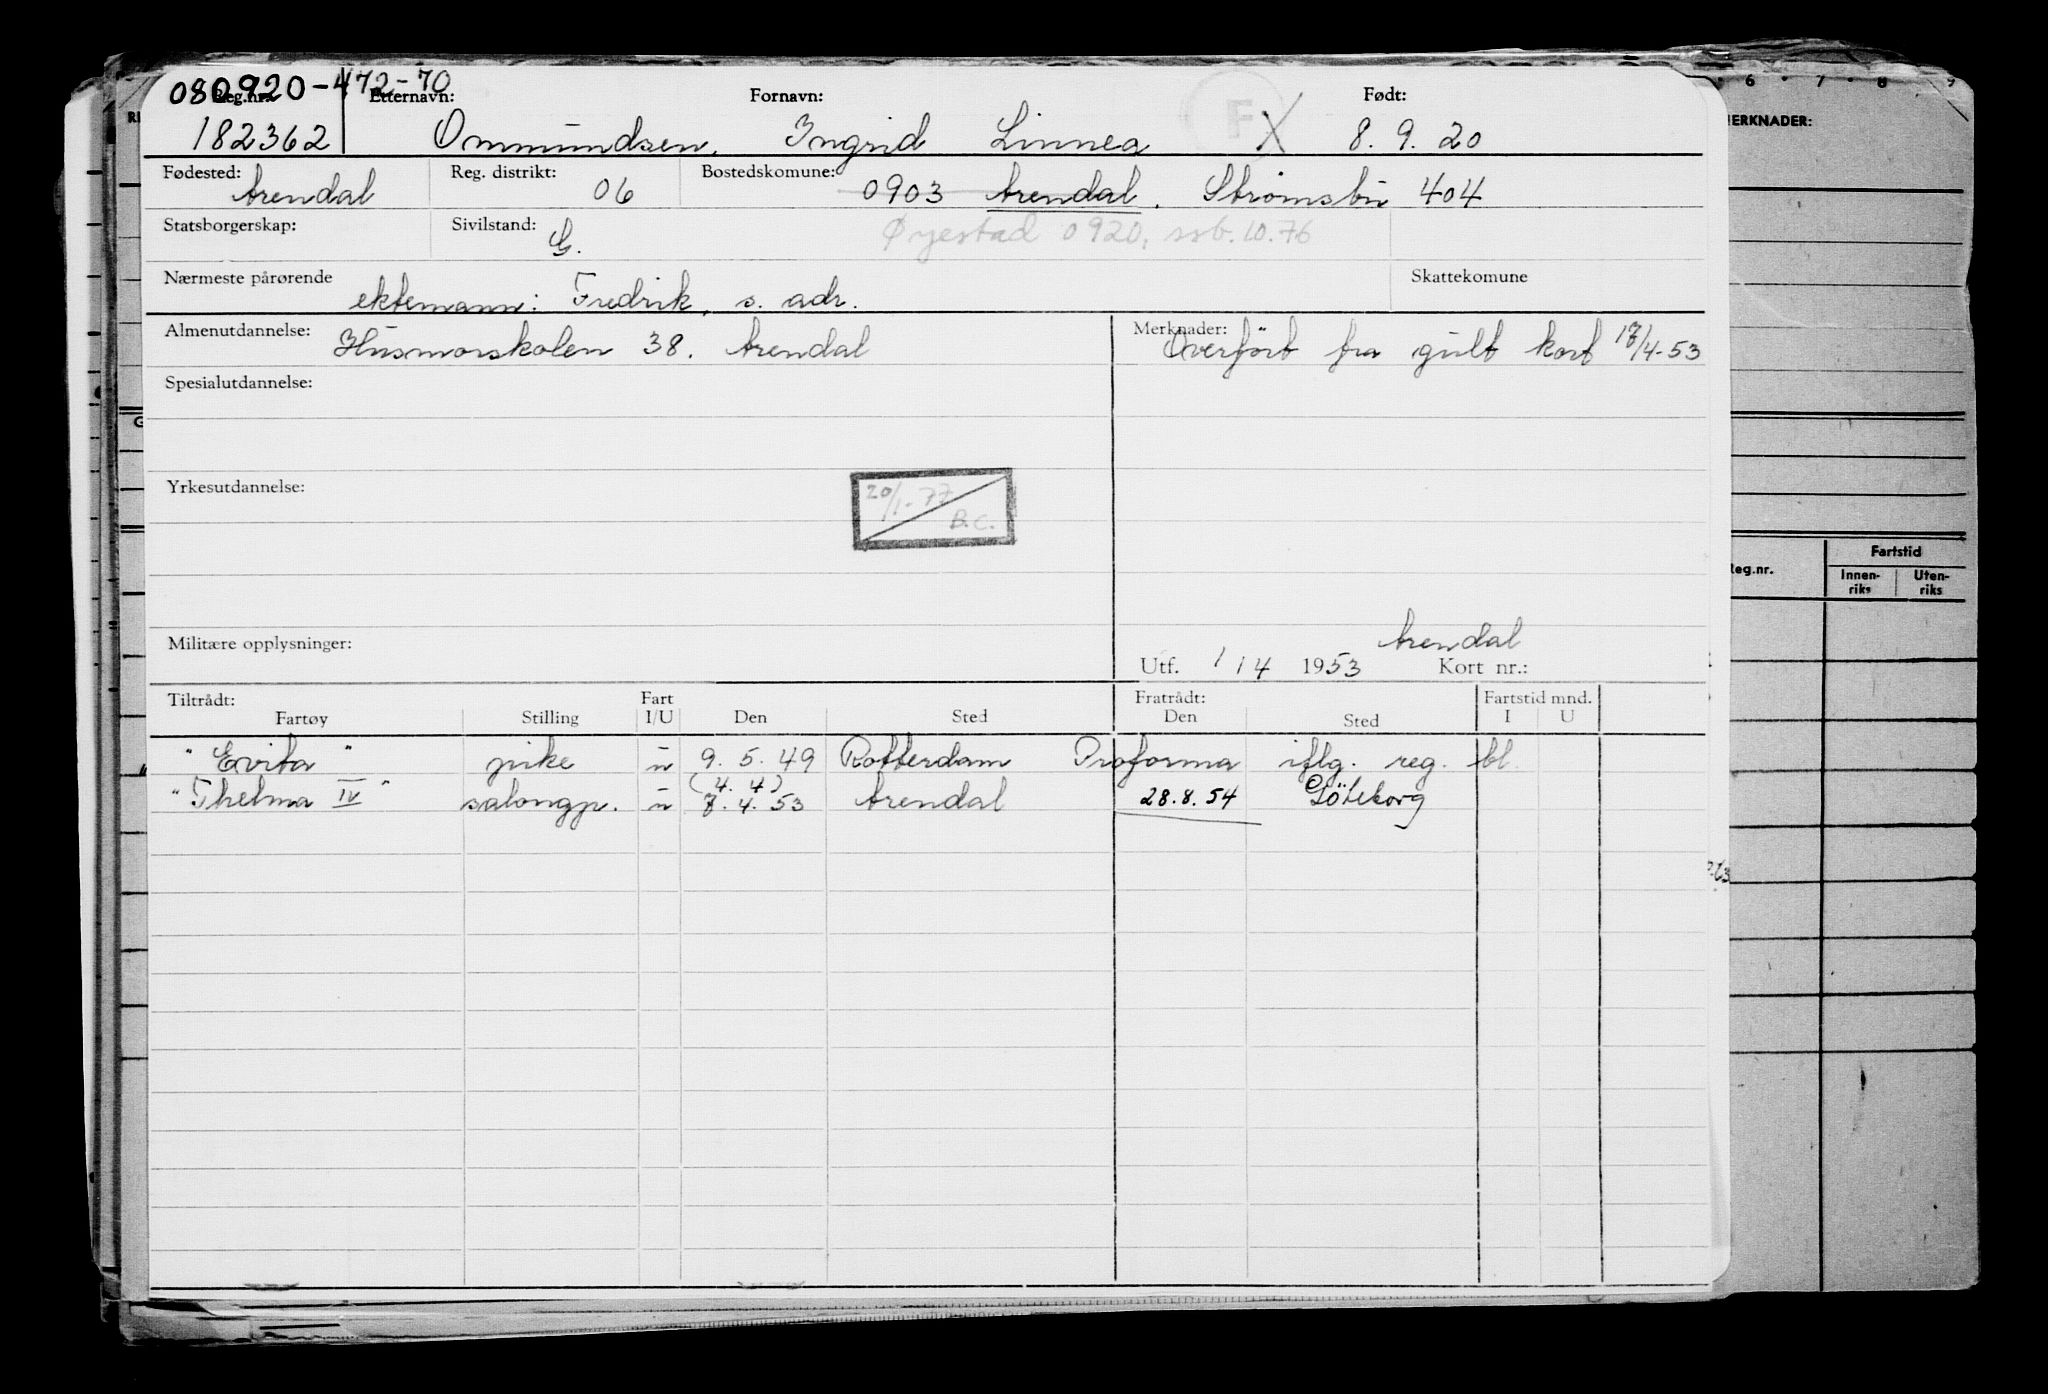 080920-472-70
Reg.nr. Etternavn: Fornavn: Født:
182362 Ommundsen, Ingrid Linnea F X 8. 9. 20
Fødested: Arendal Reg. distrikt: 06 Bostedskomune: 0903 Arendal. Strømsbu 404
Statsborgerskap: Sivilstand: G. Øyestad 0920, ssb. 10.76
Nærmeste pårørende ektemann: Fredrik, s. adr. Skattekomune
Almenutdannelse: Husmorskolen 38. Arendal Merknader: Overført fra gult kort 17/4-53
Spesialutdannelse:
Yrkesutdannelse: 20/1-77 B.C.
Arendal
Militære opplysninger: Utf. 1/4 1953 Kort nr.:
Tiltrådt: Fart Fratrådt: Fartstid mnd.
Fartøy Stilling I/U Den Sted Den Sted I U
"Evita" pike u 9. 5. 49 Rotterdam Proforma iflg. reg. bl.
(4. 4)
"Thelma IV" salongp. u 7. 4. 53 Arendal 28.8.54 Göteborg
6 7 8 9
MERKNADER:
Reg.nr. Fartstid
Innen-riks Uten-riks